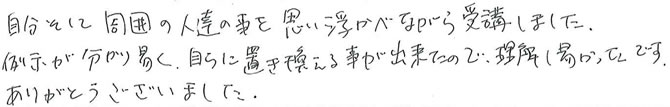 自分そして周囲の人達の事を思い浮かべながら受講しました.
例示が分かり易く、自らに置き換える事が出来たので、理解し易かったです.
ありがとうございました.